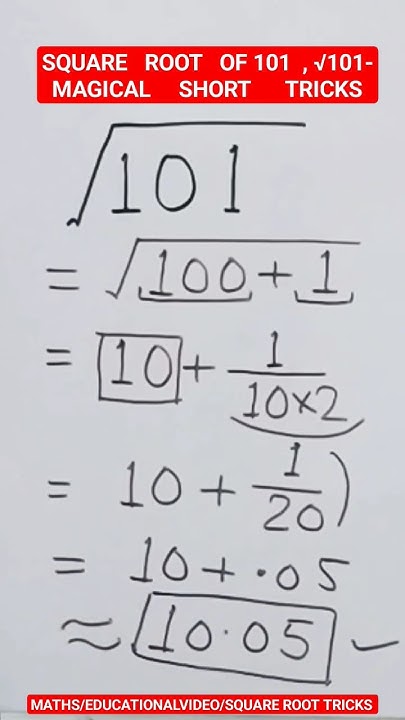 SQUARE ROOT OF 101 , √101-
MAGICAL SHORT TRICKS
√101
= √100 + 1
= 10 + 1/10×2
= 10 + 1/20)
= 10 + .05
≈ 10.05
MATHS/EDUCATIONALVIDEO/SQUARE ROOT TRICKS